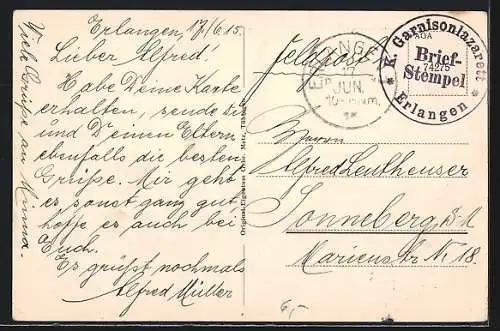 Erlangen, 17./6.15.
Lieber Alfred!
Habe Deine Karte
erhalten, sende Dir
und Deinen Eltern
ebenfalls die besten
Grüße. Mir geht
es sonst ganz gut
hoffe es auch bei
Euch.
Es grüßt nochmals
Alfred Müller
Viele Grüße an Minna.
Original-Eigentum
Metz, Tübingen
Feldpost
ERLANGEN
17
JUN.
K. Garnisonlazarett
AGA
Brief-
74275
Stempel
Erlangen
Herrn
Alfred Leutheuser
Sonneberg, S-M
Marienstr. Nr 18
6,-